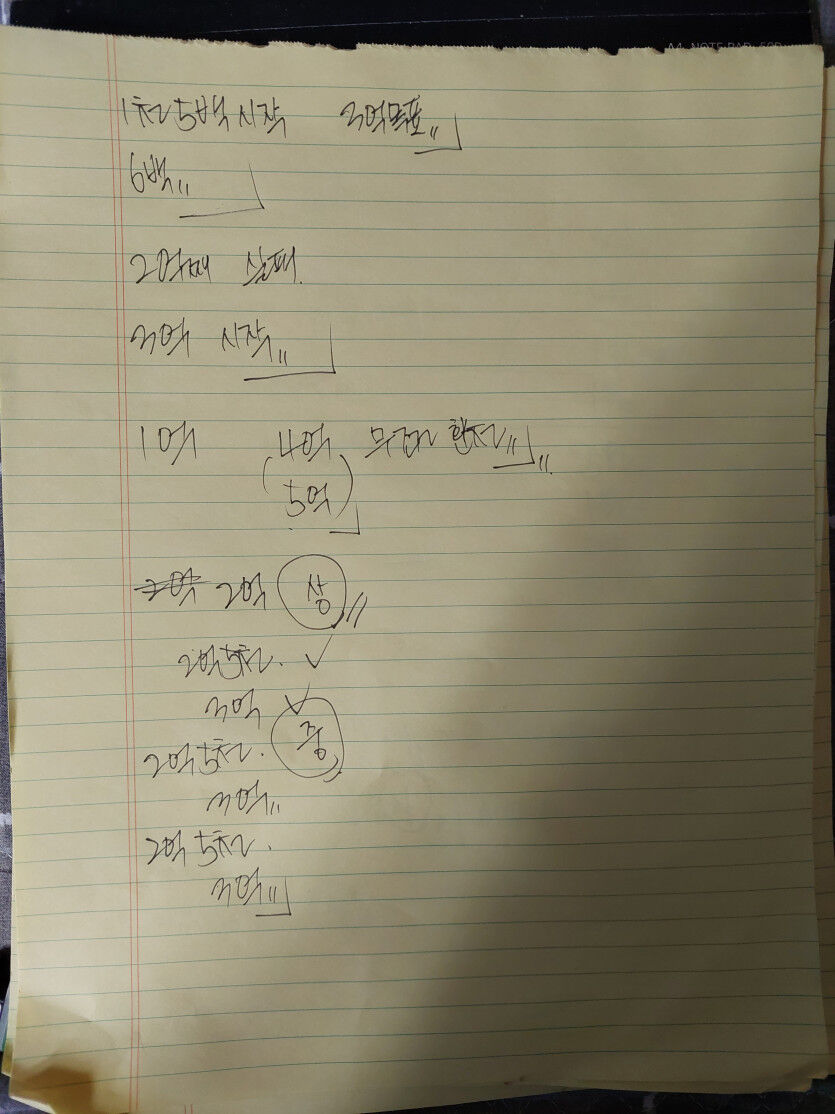 1천5백 시작 3억목표
6백
2억째 실패.
3억 시작
1억 4억 무련 한전
(5억)
2억 2억 상
2억5천.
3억
2억5천. 중
3억
2억5천.
3억